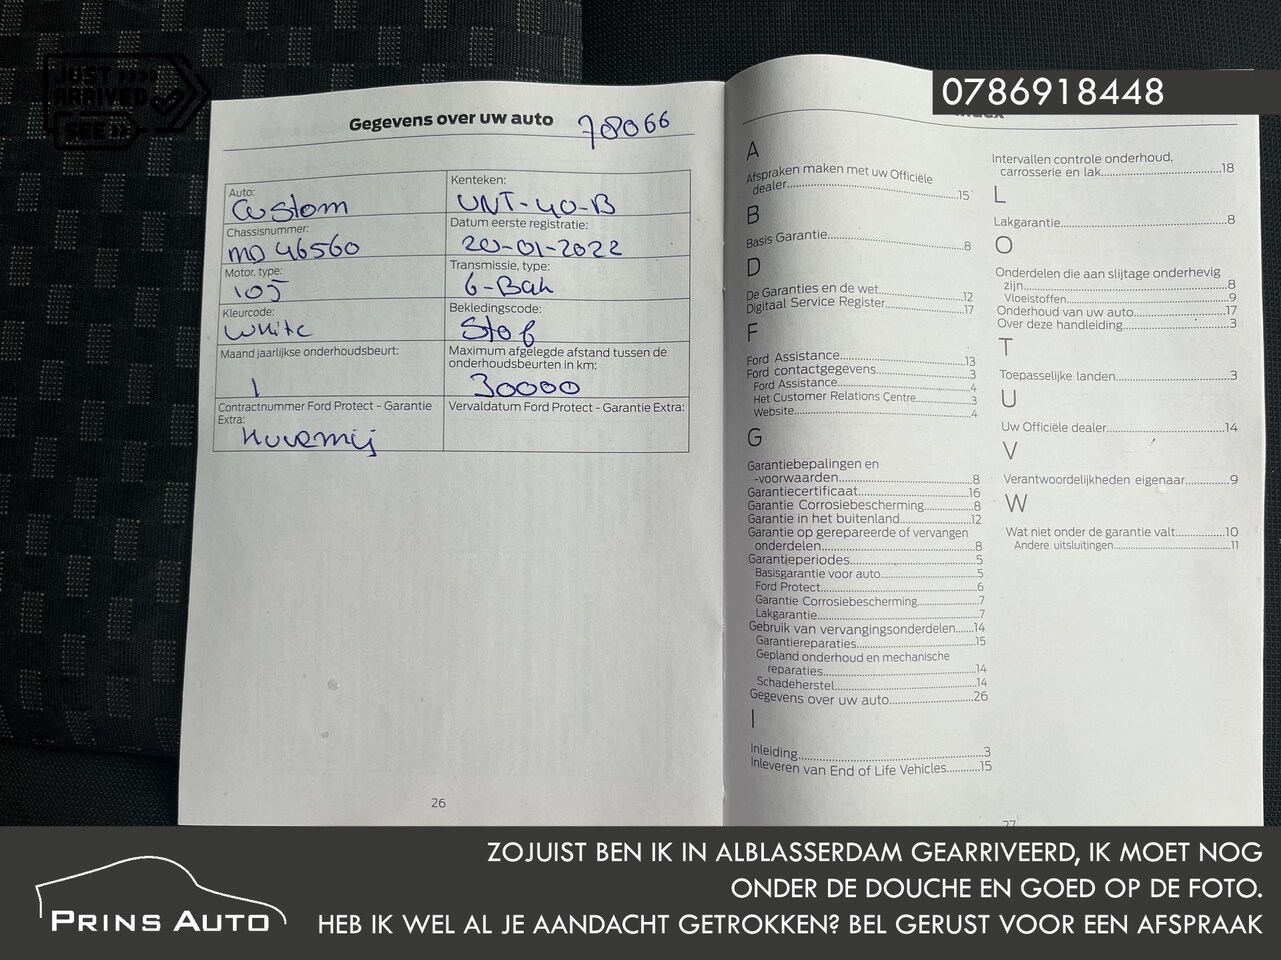 JUST
ARRIVED
SEE
0786918448
Gegevens over uw auto 78066
Auto:
Custom
Kenteken:
VNT-40-B
Chassisnummer:
MD 46560
Datum eerste registratie:
20-01-2022
Motor, type:
105
Transmissie, type:
6-Bak
Kleurcode:
White
Bekledingscode:
Stof
Maand jaarlijkse onderhoudsbeurt:
1
Maximum afgelegde afstand tussen de
onderhoudsbeurten in km:
30000
Contractnummer Ford Protect - Garantie
Extra:
Vervaldatum Ford Protect - Garantie Extra:
26
Index
A
Afspraken maken met uw Officiële
dealer...15
B
Basis Garantie...8
D
De Garanties en de wet...12
Digitaal Service Register...17
F
Ford Assistance...13
Ford contactgegevens...3
Ford Assistance...4
Het Customer Relations Centre...3
Website...4
G
Garantiebepalingen en
-voorwaarden...8
Garantiecertificaat...16
Garantie Corrosiebescherming...8
Garantie in het buitenland...12
Garantie op gerepareerde of vervangen
onderdelen...8
Garantieperiodes...5
Basisgarantie voor auto...5
Ford Protect...6
Garantie Corrosiebescherming...7
Lakgarantie...7
Gebruik van vervangingsonderdelen...14
Garantiereparaties...15
Gepland onderhoud en mechanische
reparaties...14
Schadeherstel...14
Gegevens over uw auto...26
I
Inleiding...3
Inleveren van End of Life Vehicles...15
Intervallen controle onderhoud,
carrosserie en lak...18
L
Lakgarantie...8
O
Onderdelen die aan slijtage onderhevig
zijn...8
Vloeistoffen...9
Onderhoud van uw auto...17
Over deze handleiding...3
T
Toepasselijke landen...3
U
Uw Officiële dealer...14
V
Verantwoordelijkheden eigenaar...9
W
Wat niet onder de garantie valt...10
Andere uitsluitingen...11
27
PRINS AUTO
ZOJUIST BEN IK IN ALBLASSERDAM GEARRIVEERD, IK MOET NOG
ONDER DE DOUCHE EN GOED OP DE FOTO.
HEB IK WEL AL JE AANDACHT GETROKKEN? BEL GERUST VOOR EEN AFSPRAAK